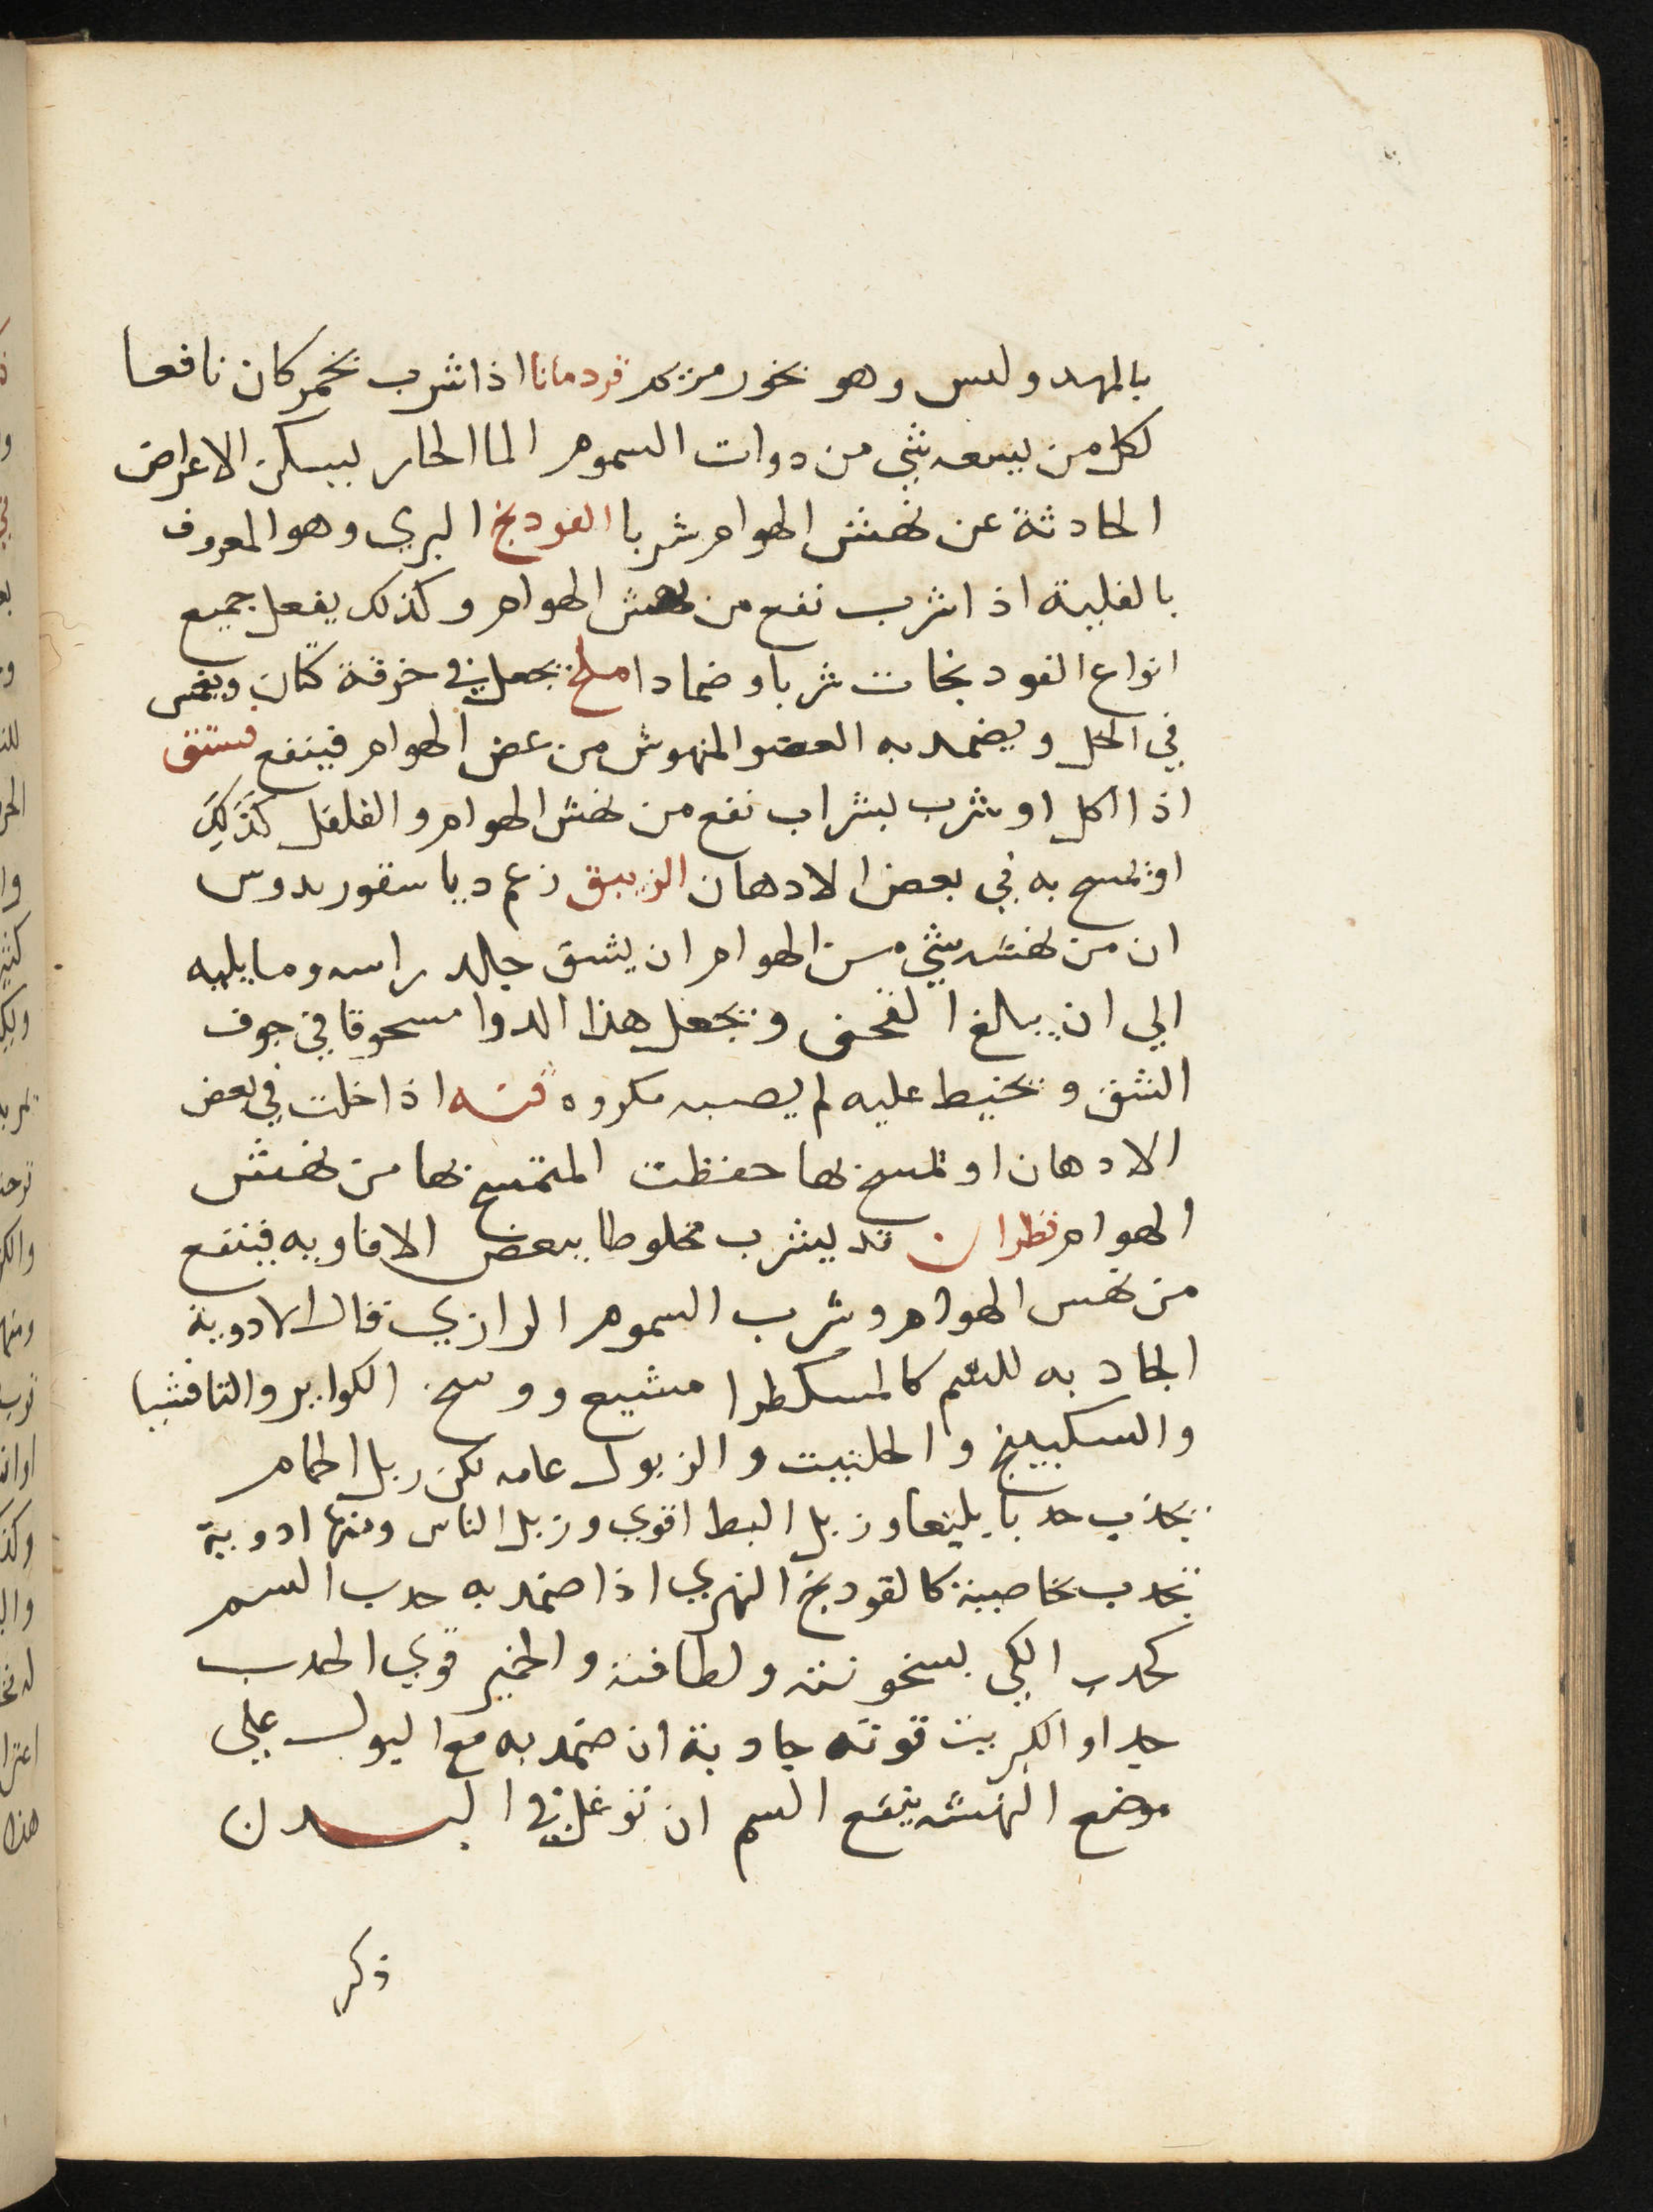 وهو بخور قردمانا اذا شرب بخمر كان نافعا
لكل من لسعه شي من دوات السموم الما الحار يسكن الاعراض
الحادثة عن نهش الهوام شربا الفودنج البري وهو المعروف
بالفلية اذا شرب نفع من نهش الهوام وكذلك يفعل جميع
انواع الفودنجات شربا وضمادا ملح يجعل في خرقة كتان ويغمس
في الخل ويضمد به العضو المنهوش من عض الهوام فينفع فستق
اذا اكل او شرب بشراب نفع من نهش الهوام والفلفل كذلك
او تمسح به في بعض الادهان الزيبق زعم دياسقوريدوس
ان من نهشه شي من الهوام ان يشق جلد راسه وما يليه
الي ان يبلغ القحف ويجعل هذا الدوا مسحوقا في جوف
الشق ويخيط عليه لم يصبه مكروه قنه اذا خلت في بعض
الادهان او تمسح بها حفظت المتمسح بها من نهش
الهوام قطران قد يشرب مخلوطا ببعض الافاويه فينفع
من نهس الهوام وشرب السموم الرازي قال الادوية
الجادبه للسم كالمسكطرا مشيع ووسخ الكواير والتافشيا
والسكبينج والحلتيت والزبول عامه لكن زبل الحمام
يجذب جدبا بليغا وزبل البط اقوي وزبل الناس ومنها ادوية
تجدب بخاصية كالفودنج النهري اذا ضمد به جدب السم
كجدب الكي بسخونته ولطافته والخمير قوي الجدب
جدا والكبريت قوته جادبة ان ضمد به مع البول علي
موضع النهشه يمنع السم ان توغل في البدن
ذكر